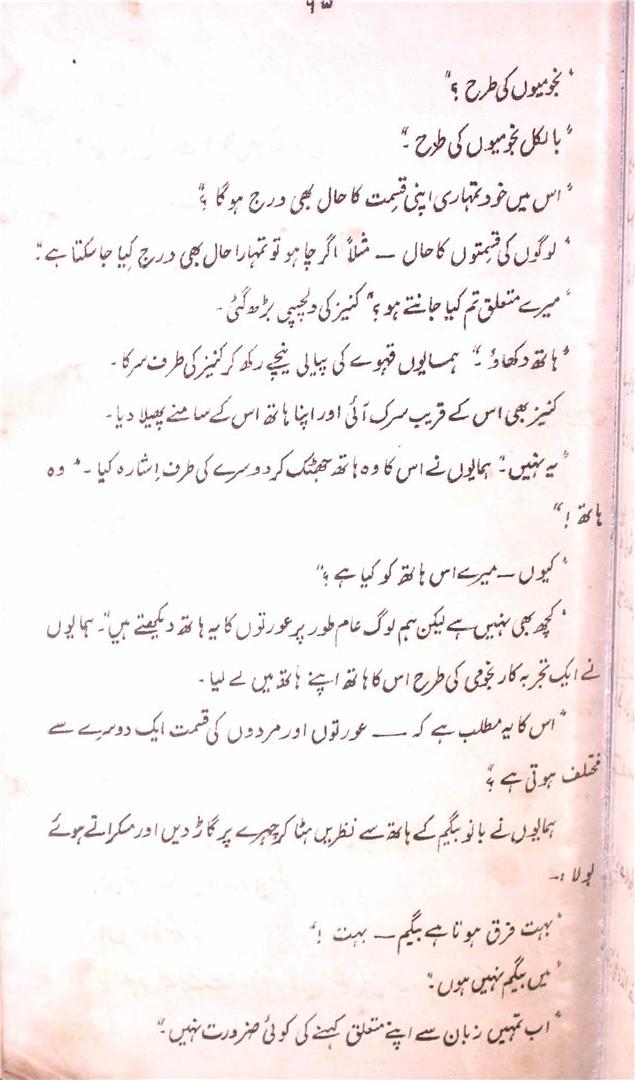 ۶۳
"نجومیوں کی طرح ؟"
"بالکل نجومیوں کی طرح ۔"
"اس میں خود تمہاری اپنی قسمت کا حال بھی درج ہوگا ؟"
"لوگوں کی قسمتوں کا حال — مثلاً اگر چاہو تو تمہارا حال بھی درج کیا جاسکتا ہے ۔"
"میرے متعلق تم کیا جانتے ہو ؟" کنیز کی دلچسپی بڑھ گئی ۔
"ہاتھ دکھاؤ ۔" ہمایوں قہوے کی پیالی نیچے رکھ کر کنیز کی طرف سرکا ۔
کنیز بھی اس کے قریب سرک آئی اور اپنا ہاتھ اس کے سامنے پھیلا دیا ۔
"یہ نہیں ۔" ہمایوں نے اس کا وہ ہاتھ جھٹک کر دوسرے کی طرف اشارہ کیا ۔ "وہ
ہاتھ !"
"کیوں — میرے اس ہاتھ کو کیا ہے ؟"
"کچھ بھی نہیں ہے لیکن ہم لوگ عام طور پر عورتوں کا یہ ہاتھ دیکھتے ہیں ۔" ہمایوں
نے ایک تجربہ کار نجومی کی طرح اس کا ہاتھ اپنے ہاتھ میں لے لیا ۔
"اس کا یہ مطلب ہے کہ — عورتوں اور مردوں کی قسمت ایک دوسرے سے
مختلف ہوتی ہے ؟"
ہمایوں نے بانو بیگم کے ہاتھ سے نظریں ہٹا کر چہرے پر گاڑ دیں اور مسکراتے ہوئے
بولا :۔
"بہت فرق ہوتا ہے بیگم — بہت !"
"میں بیگم نہیں ہوں ۔"
"اب تمہیں زبان سے اپنے متعلق کہنے کی کوئی ضرورت نہیں ۔"